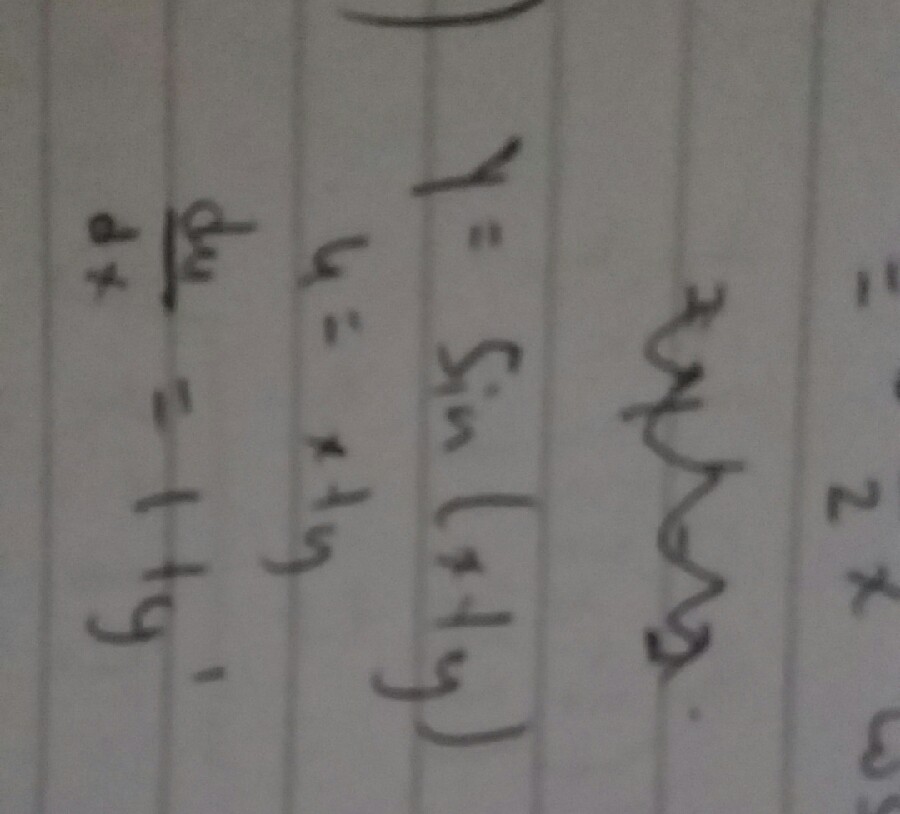 = 2x
y = Sin (x+y)
u = x+y
du/dx = 1+y'